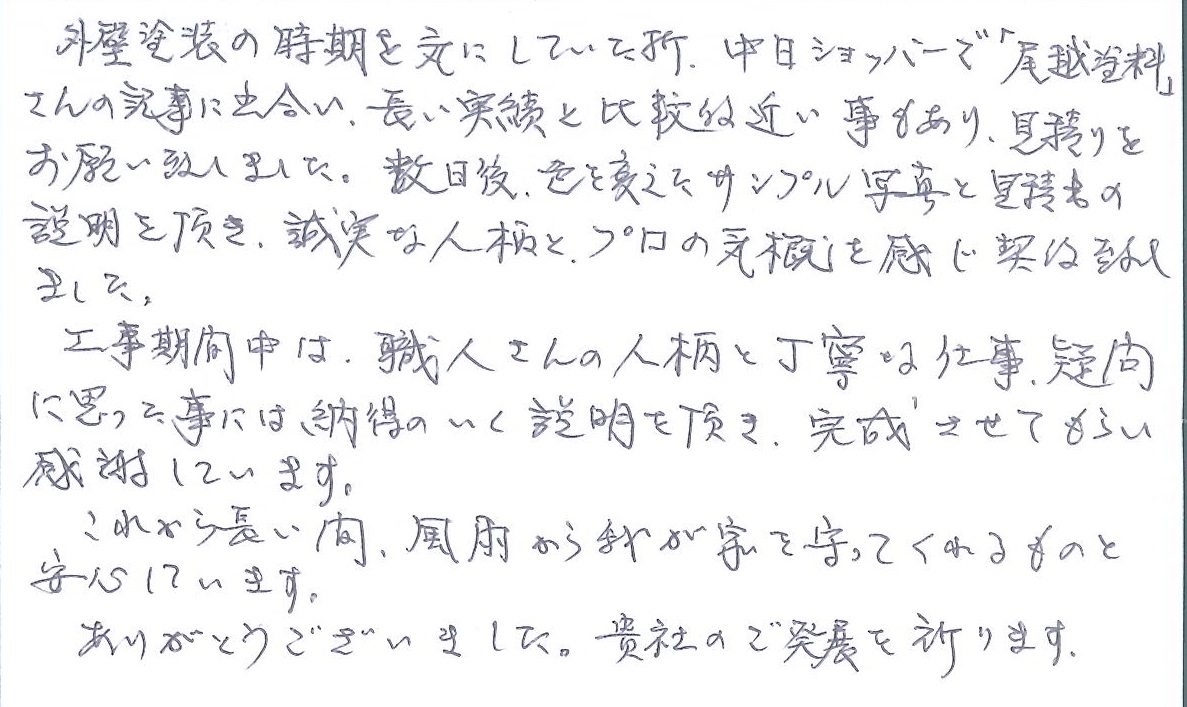 外壁塗装の時期を気にしていた折、中日ショッパーで「尾越塗料」
さんの記事に出合い、長い実績と比較的近い事もあり、見積りを
お願い致しました。数日後、色を変えたサンプル写真と見積書の
説明を頂き、誠実な人柄と、プロの気概を感じ契約致し
ました。
工事期間中は、職人さんの人柄と丁寧な仕事、疑問
に思った事には納得のいく説明を頂き、完成させてもらい
感謝しています。
これから長い間、風雨から我が家を守ってくれるものと
安心しています。
ありがとうございました。貴社のご発展を祈ります。